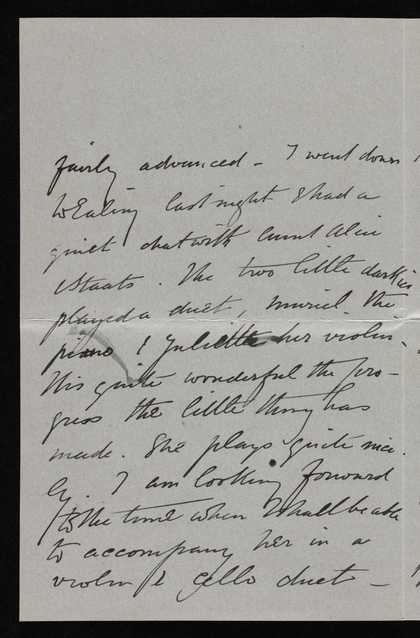 fairly advanced - I went down
to Ealing last night & had a
quiet chat with Aunt Alice
Staats. The two little darkies
played a duet, Muriel the
piano & Juliette her violin.
'Tis quite wonderful the pro-
gress the little thing has
made. She plays quite nice-
ly. I am looking forward
to the time when I shall be able
to accompany her in a
violin & cello duet -